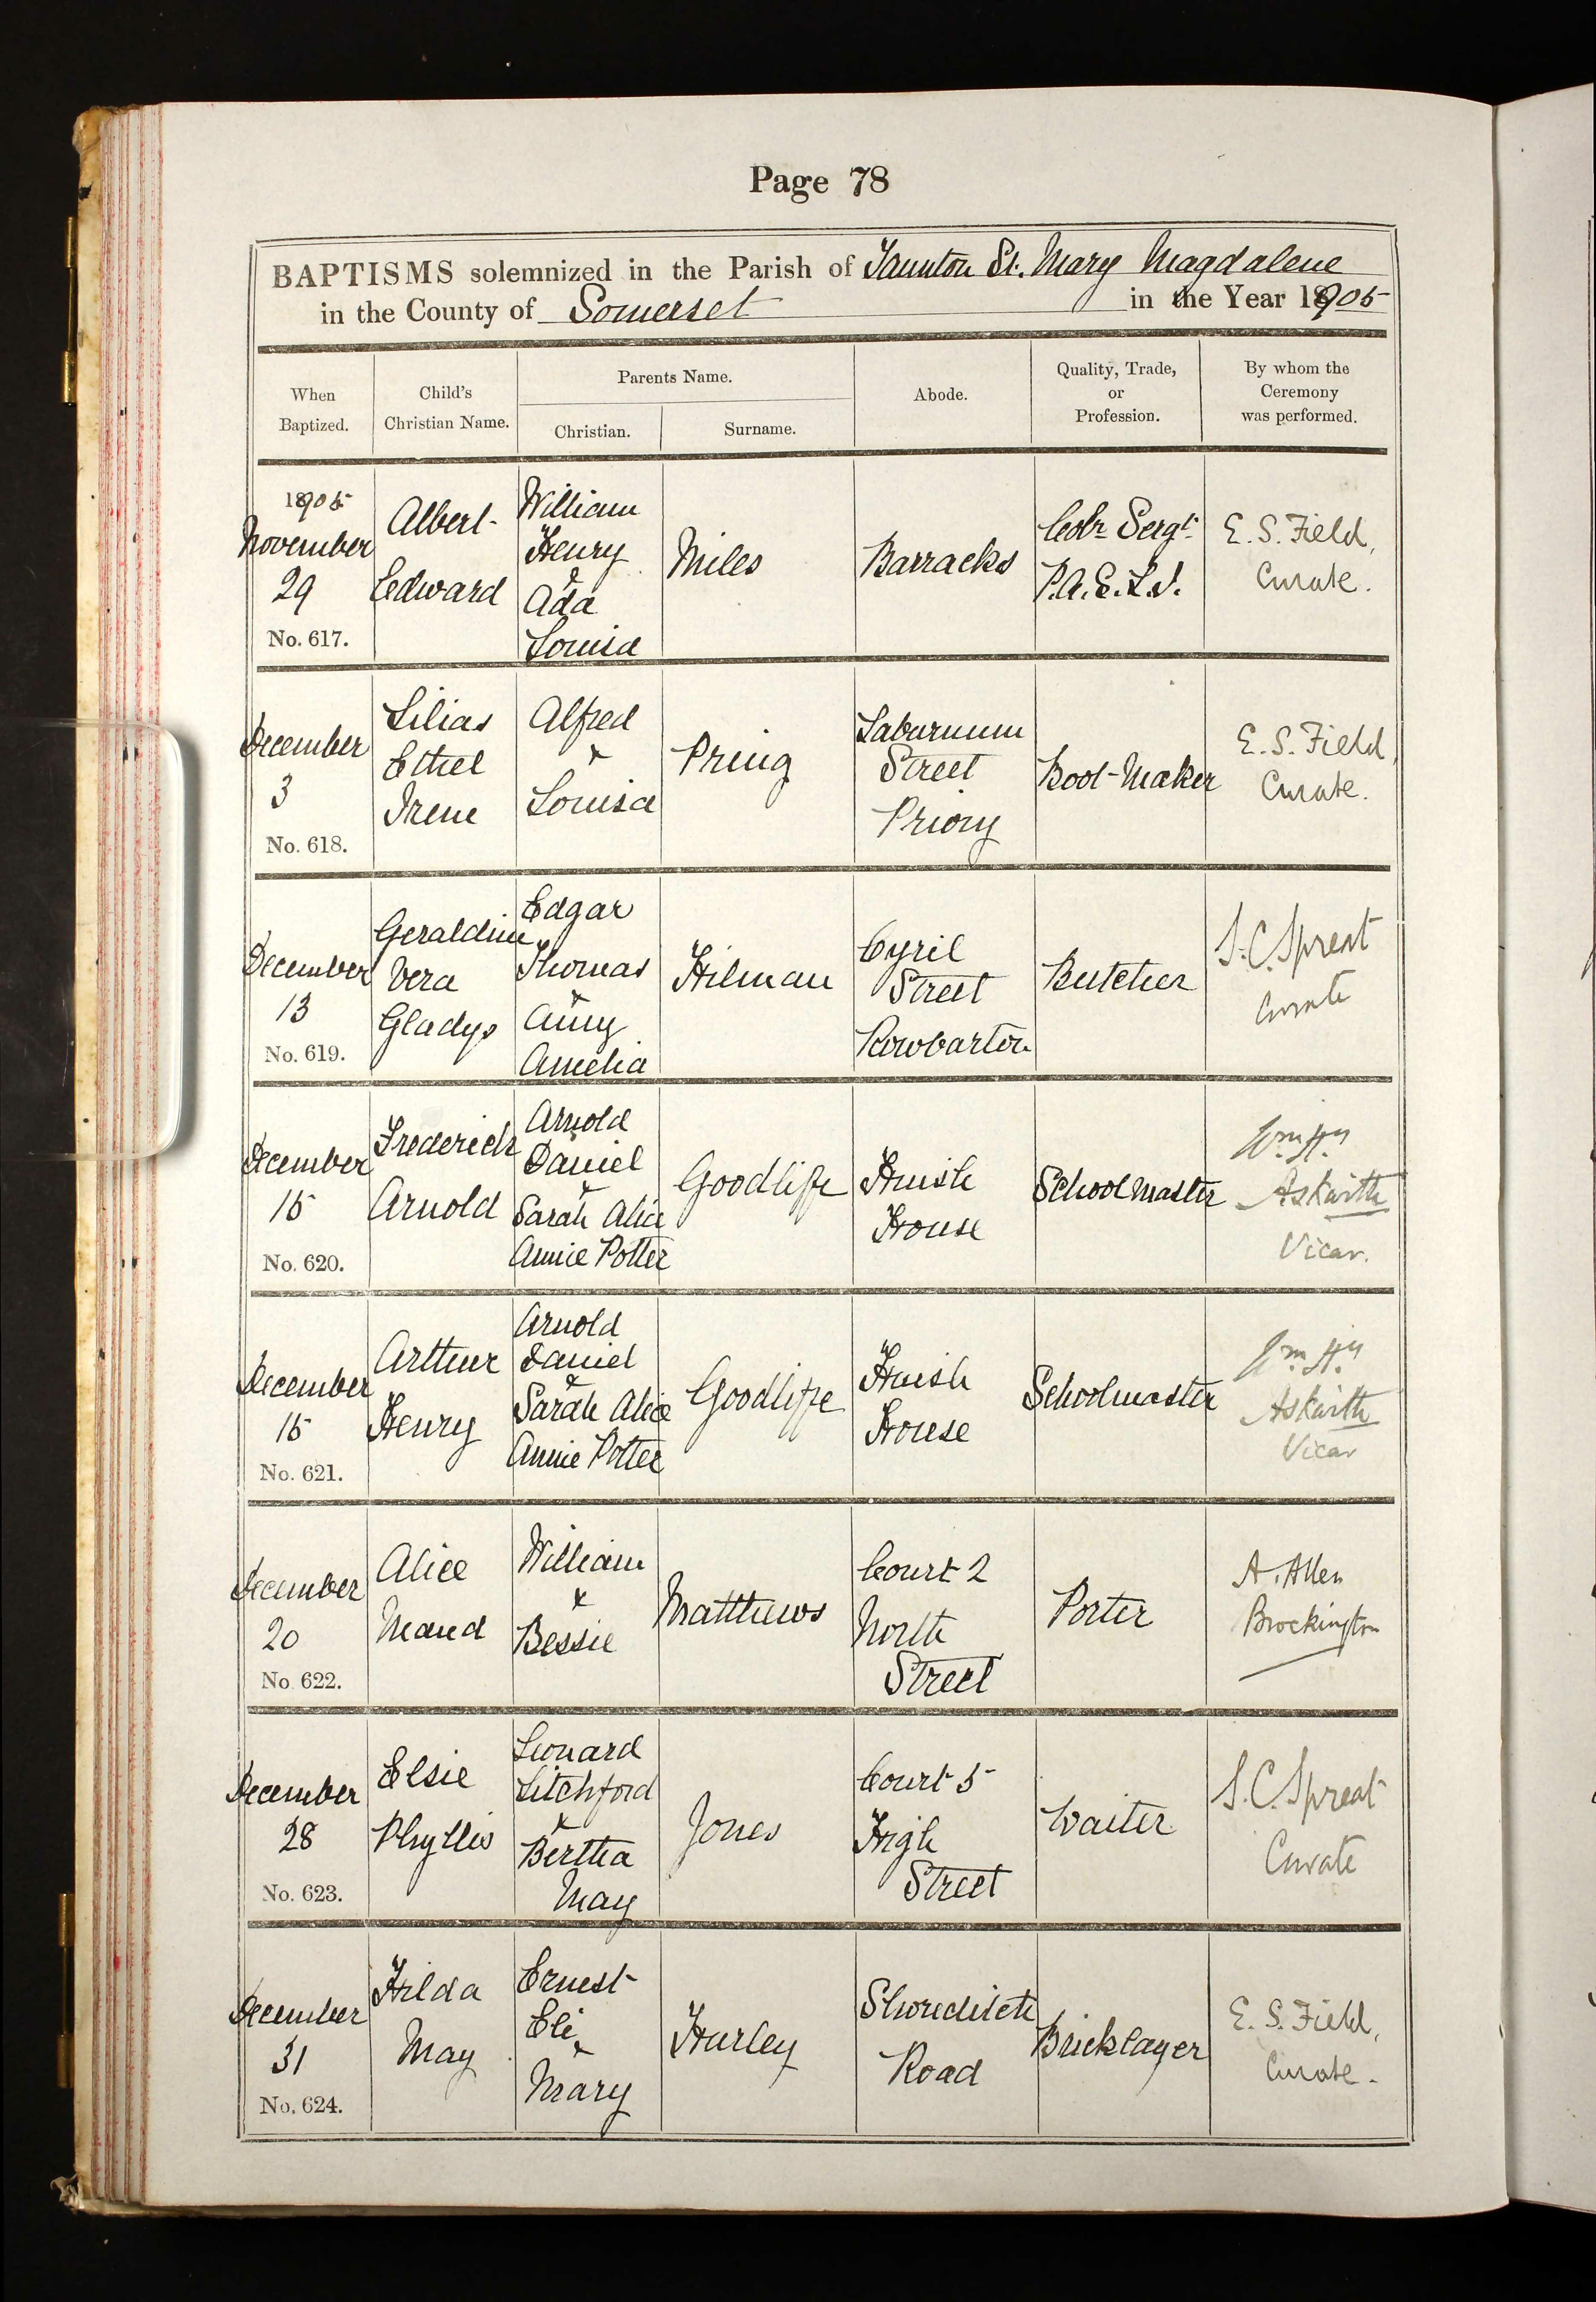 Page 78
BAPTISMS solemnized in the Parish of Taunton St. Mary Magdalene
in the County of Somerset in the Year 1905
When Baptized.
Child's Christian Name.
Parents Name.
Christian.
Surname.
Abode.
Quality, Trade, or Profession.
By whom the Ceremony was performed.
1905
November
29
No. 617.
Albert
Edward
William
Henry
&
Ada
Louisa
Miles
Barracks
Colr Sergt
P.A.S.L.I.
E. S. Field,
Curate.
December
3
No. 618.
Lilias
Ethel
Irene
Alfred
&
Louisa
Pring
Laburnum
Street
Priory
Boot-Maker
E. S. Field,
Curate.
December
13
No. 619.
Geraldine
Vera
Gladys
Edgar
Thomas
&
Amy
Amelia
Hilman
Cyril
Street
Rowbarton
Butcher
S. C. Spreat
Curate
December
15
No. 620.
Frederick
Arnold
Arnold
Daniel
&
Sarah Alice
Annie Potter
Goodliffe
Huish
House
Schoolmaster
Wm Hy
Askwith
Vicar.
December
15
No. 621.
Arthur
Henry
Arnold
Daniel
&
Sarah Alice
Annie Potter
Goodliffe
Huish
House
Schoolmaster
Wm Hy
Askwith
Vicar
December
20
No. 622.
Alice
Maud
William
&
Bessie
Matthews
Court 2
North
Street
Porter
A. Allen
Brockington
December
28
No. 623.
Elsie
Phyllis
Leonard
Litchford
&
Bertha
May
Jones
Court 5
High
Street
Waiter
S. C. Spreat
Curate
December
31
No. 624.
Hilda
May
Ernest
Eli
&
Mary
Hurley
Shoreditch
Road
Bricklayer
E. S. Field,
Curate.